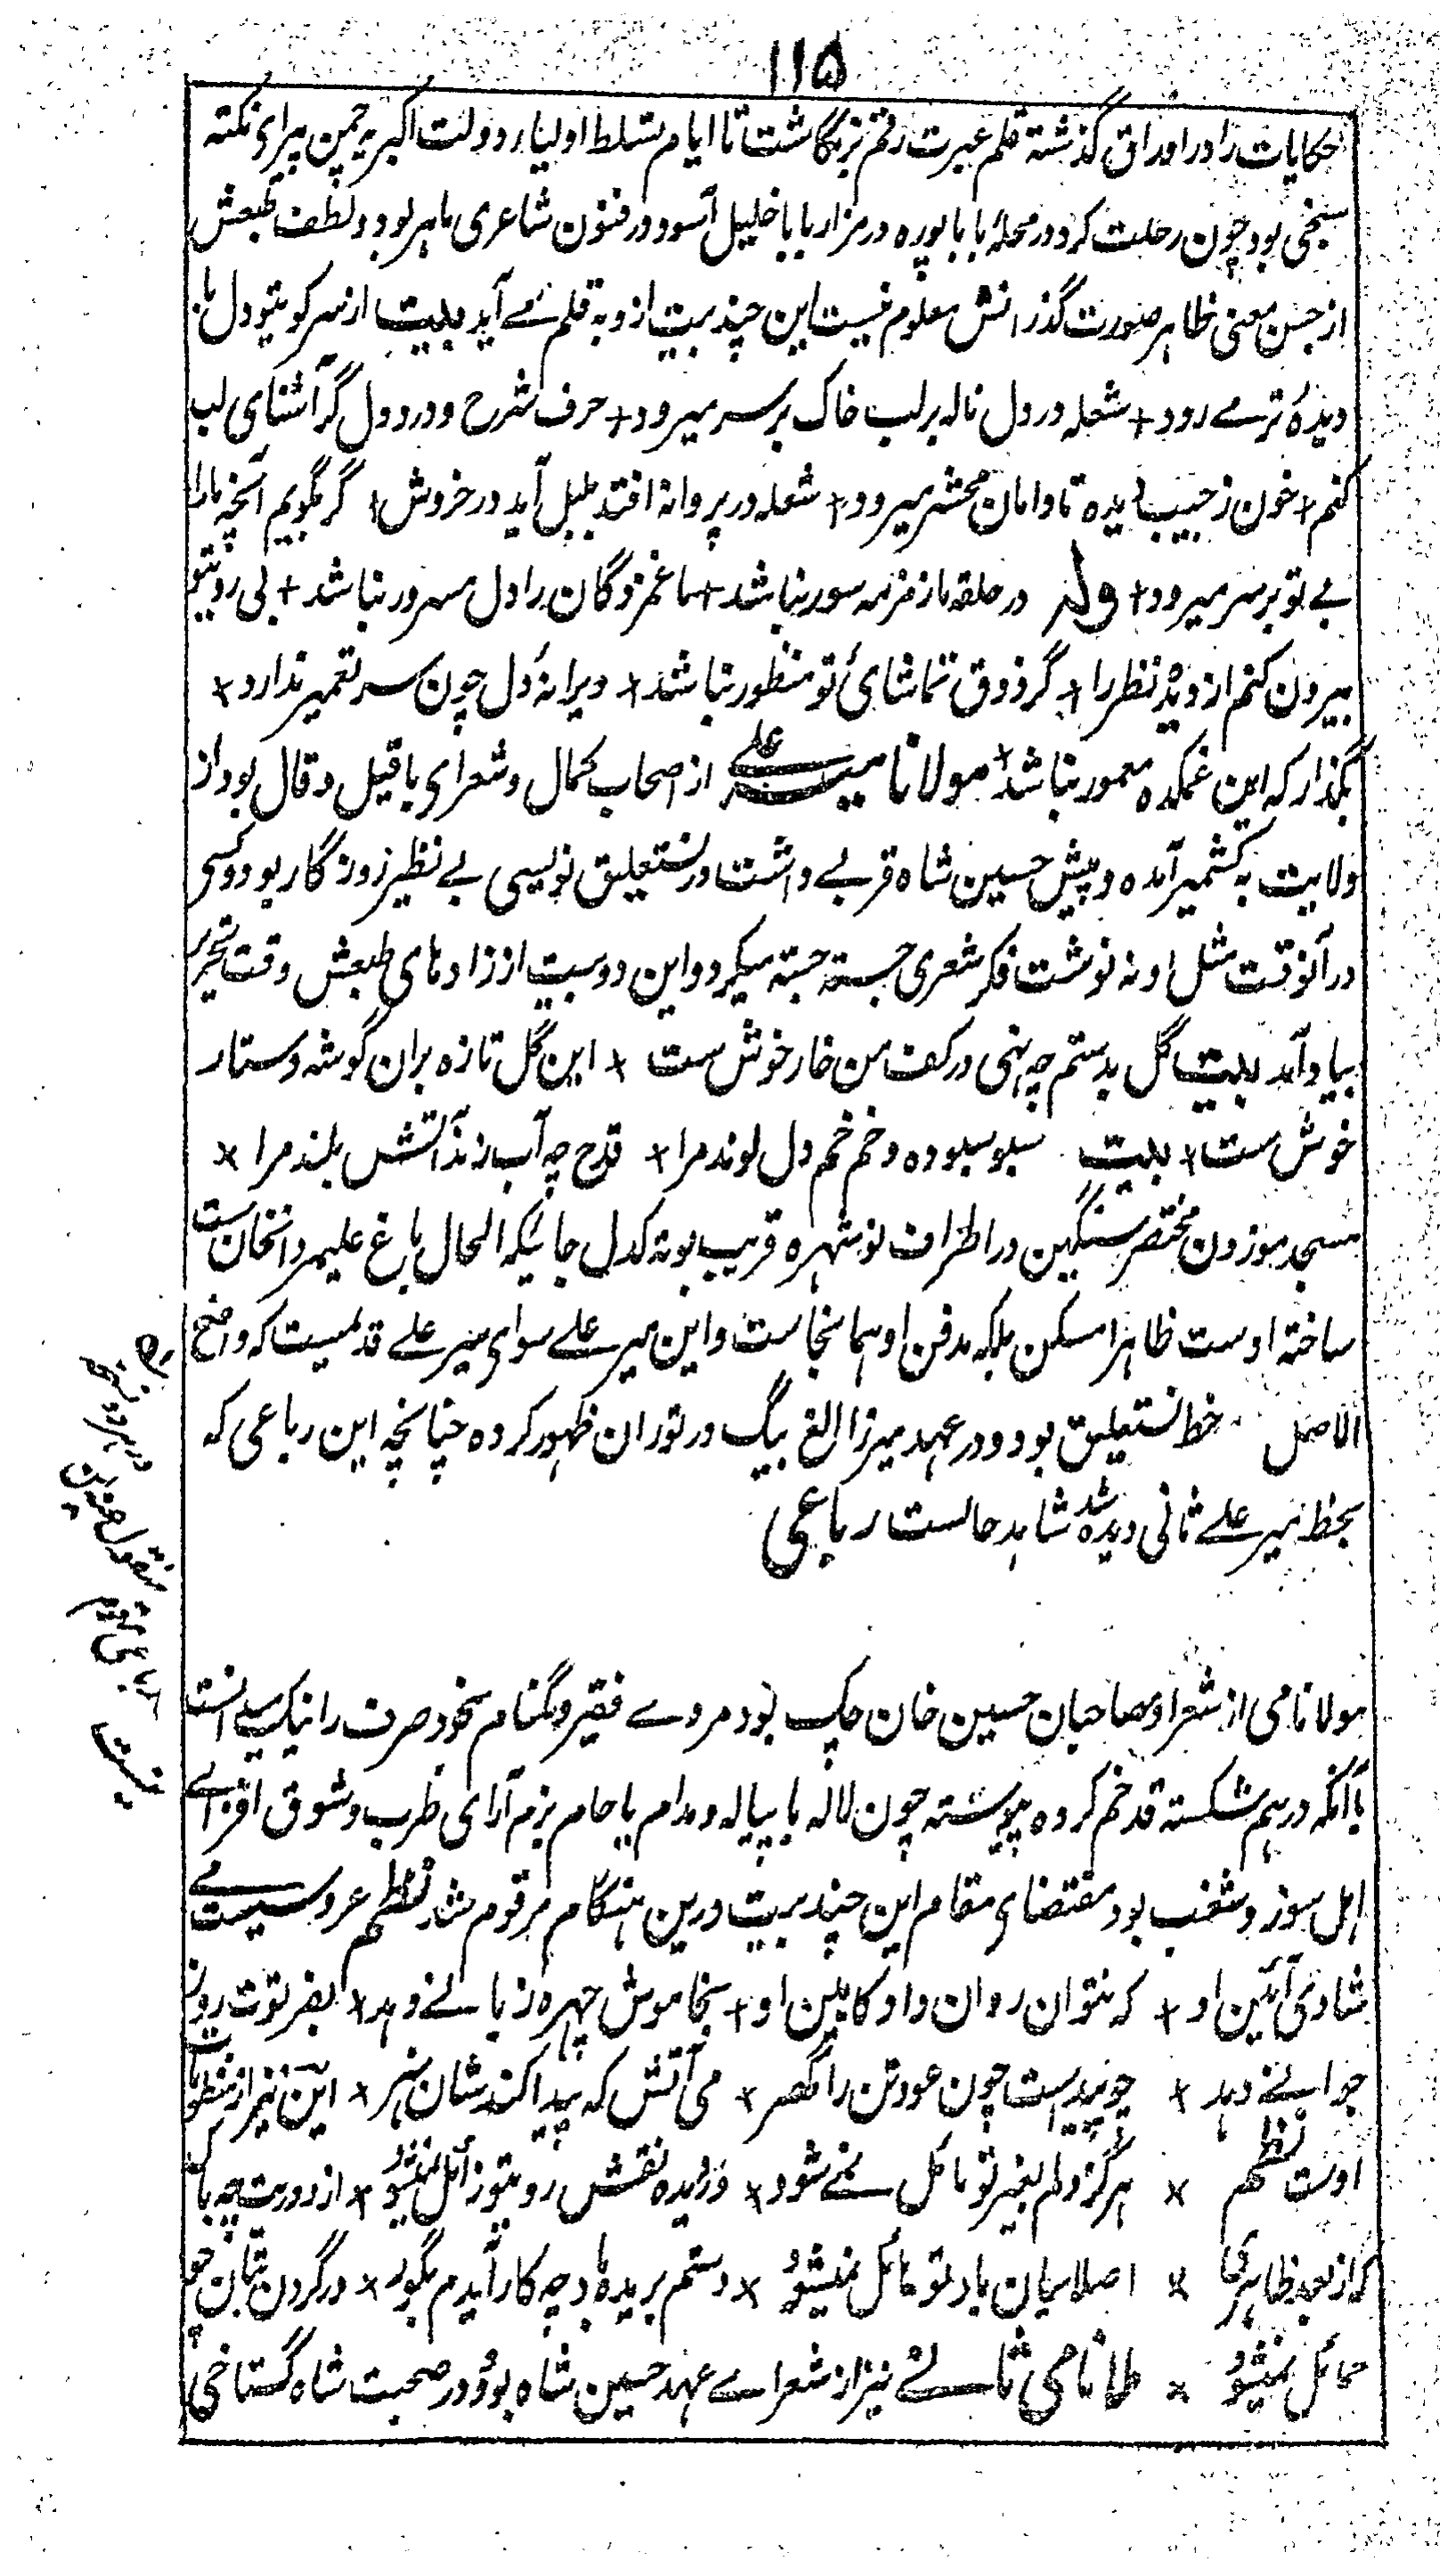 ۱۱۵
حکایات را در اوراق گذشته قلم عبرت رقم بر نگاشت تا ایام تسلط اولیاء دولت اکبریه چمن پیرای نکته
سنجی بود چون رحلت کرد در محلهٔ بابا پوره در مزار بابا خلیل آسود در فنون شاعری ماهر بود و لطف طبعش
از حسن معنی ظاهر صورت گذرانش معلوم نیست این چند بیت ازو به قلم مے آید بیت از سر کویتو دل با
دیدهٔ تر مے رود + شعله در دل ناله بر لب خاک بر سر میرود + حرف شرح درد دل گر آشنای لب
کنم + خون ز جیب دیده تا دامان محشر میرود + شعله در پروانه افتد بلبل آید در خروش + گر بگویم آنچه ما را
بے تو بر سر میرود + وله در حلقه ما زمزمه سور نباشد + ما غمزدگان را دل مسرور نباشد + بی رویتو
بیرون کنم از دیده نظر را + گر ذوق تماشائ تو منظور نباشد + ویرانهٔ دل چون سر تعمیر ندارد +
بگذار که این غمکده معمور نباشد + مولانا میر علے از اصحاب کمال و شعرای با قیل و قال بود از
ولایت به کشمیر آمده و پیش حسین شاه قربے داشت در نستعلیق نویسی بے نظیر روزگار بود و کسی
در آنوقت مثل او نه نوشت فکر شعری جسته جسته میکرد و این دو بیت از زادهای طبعش وقت تحریر
بیاد آمد بیت گل بدستم چه نهی در کف من خار خوش ست + این گل تازه بران گوشه دستار
خوش ست + بیت سبو سبو ده و خم خم دل لوند مرا + قدح چه آب زند آتش بلند مرا +
مسجد موزون مختصر سنگین در اطراف نوشهره قریب بوته کدل جائیکه الحال باغ علیمردانخان ست
ساخته اوست ظاهرا مسکن بلکه مدفن او همانجاست و این میر علے سوای میر علے قدیمیست که واضح
الاصل خط نستعلیق بود و در عهد میرزا الغ بیگ در توران ظهور کرده چنانچه این رباعی که
بخط میر علے ثانی دیده شد شاهد حالست رباعی
در هر دو نسخه
منقول عنه این
رباعی تحریر
نیست
مولانا نامی از شعرا و مصاحبان حسین خان چک بود مردے فقیر و گمنام بخود صرف را نیک میدانست
با آنکه در هم شکسته قد خم کرده پیوسته چون لاله با پیاله و مدام با جام بزم آرای طرب و شوق افزاے
اهل سوز و شغب بود مقتضای مقام این چند بیت درین هنگام مرقوم شد نظم عروسیست مے
شادی آئین او + که نتوان روان داد کابین او + بخاموش چهره زبانے دهد + بفرتوت روز
جوانے دهد + چو بیدست چون عود تن را گهر + می آتش که پیدا کند شان هنر + این نیز از منظومات
اوست نظم + هرگز دلم بغیر تو مائل نمے شود + وز دیده نقش رویتو زائل نمیشود + از دوریت چه باک
که از بعد ظاهری + اصلا میان یاد تو حائل نمیشود + دستم بریده باد چه کار آیدم بگور + در گردن بتان چو
حمائل نمیشود + ملا نامی ثانے نیز از شعراے عهد حسین شاه بود و در صحبت شاه گستاخی